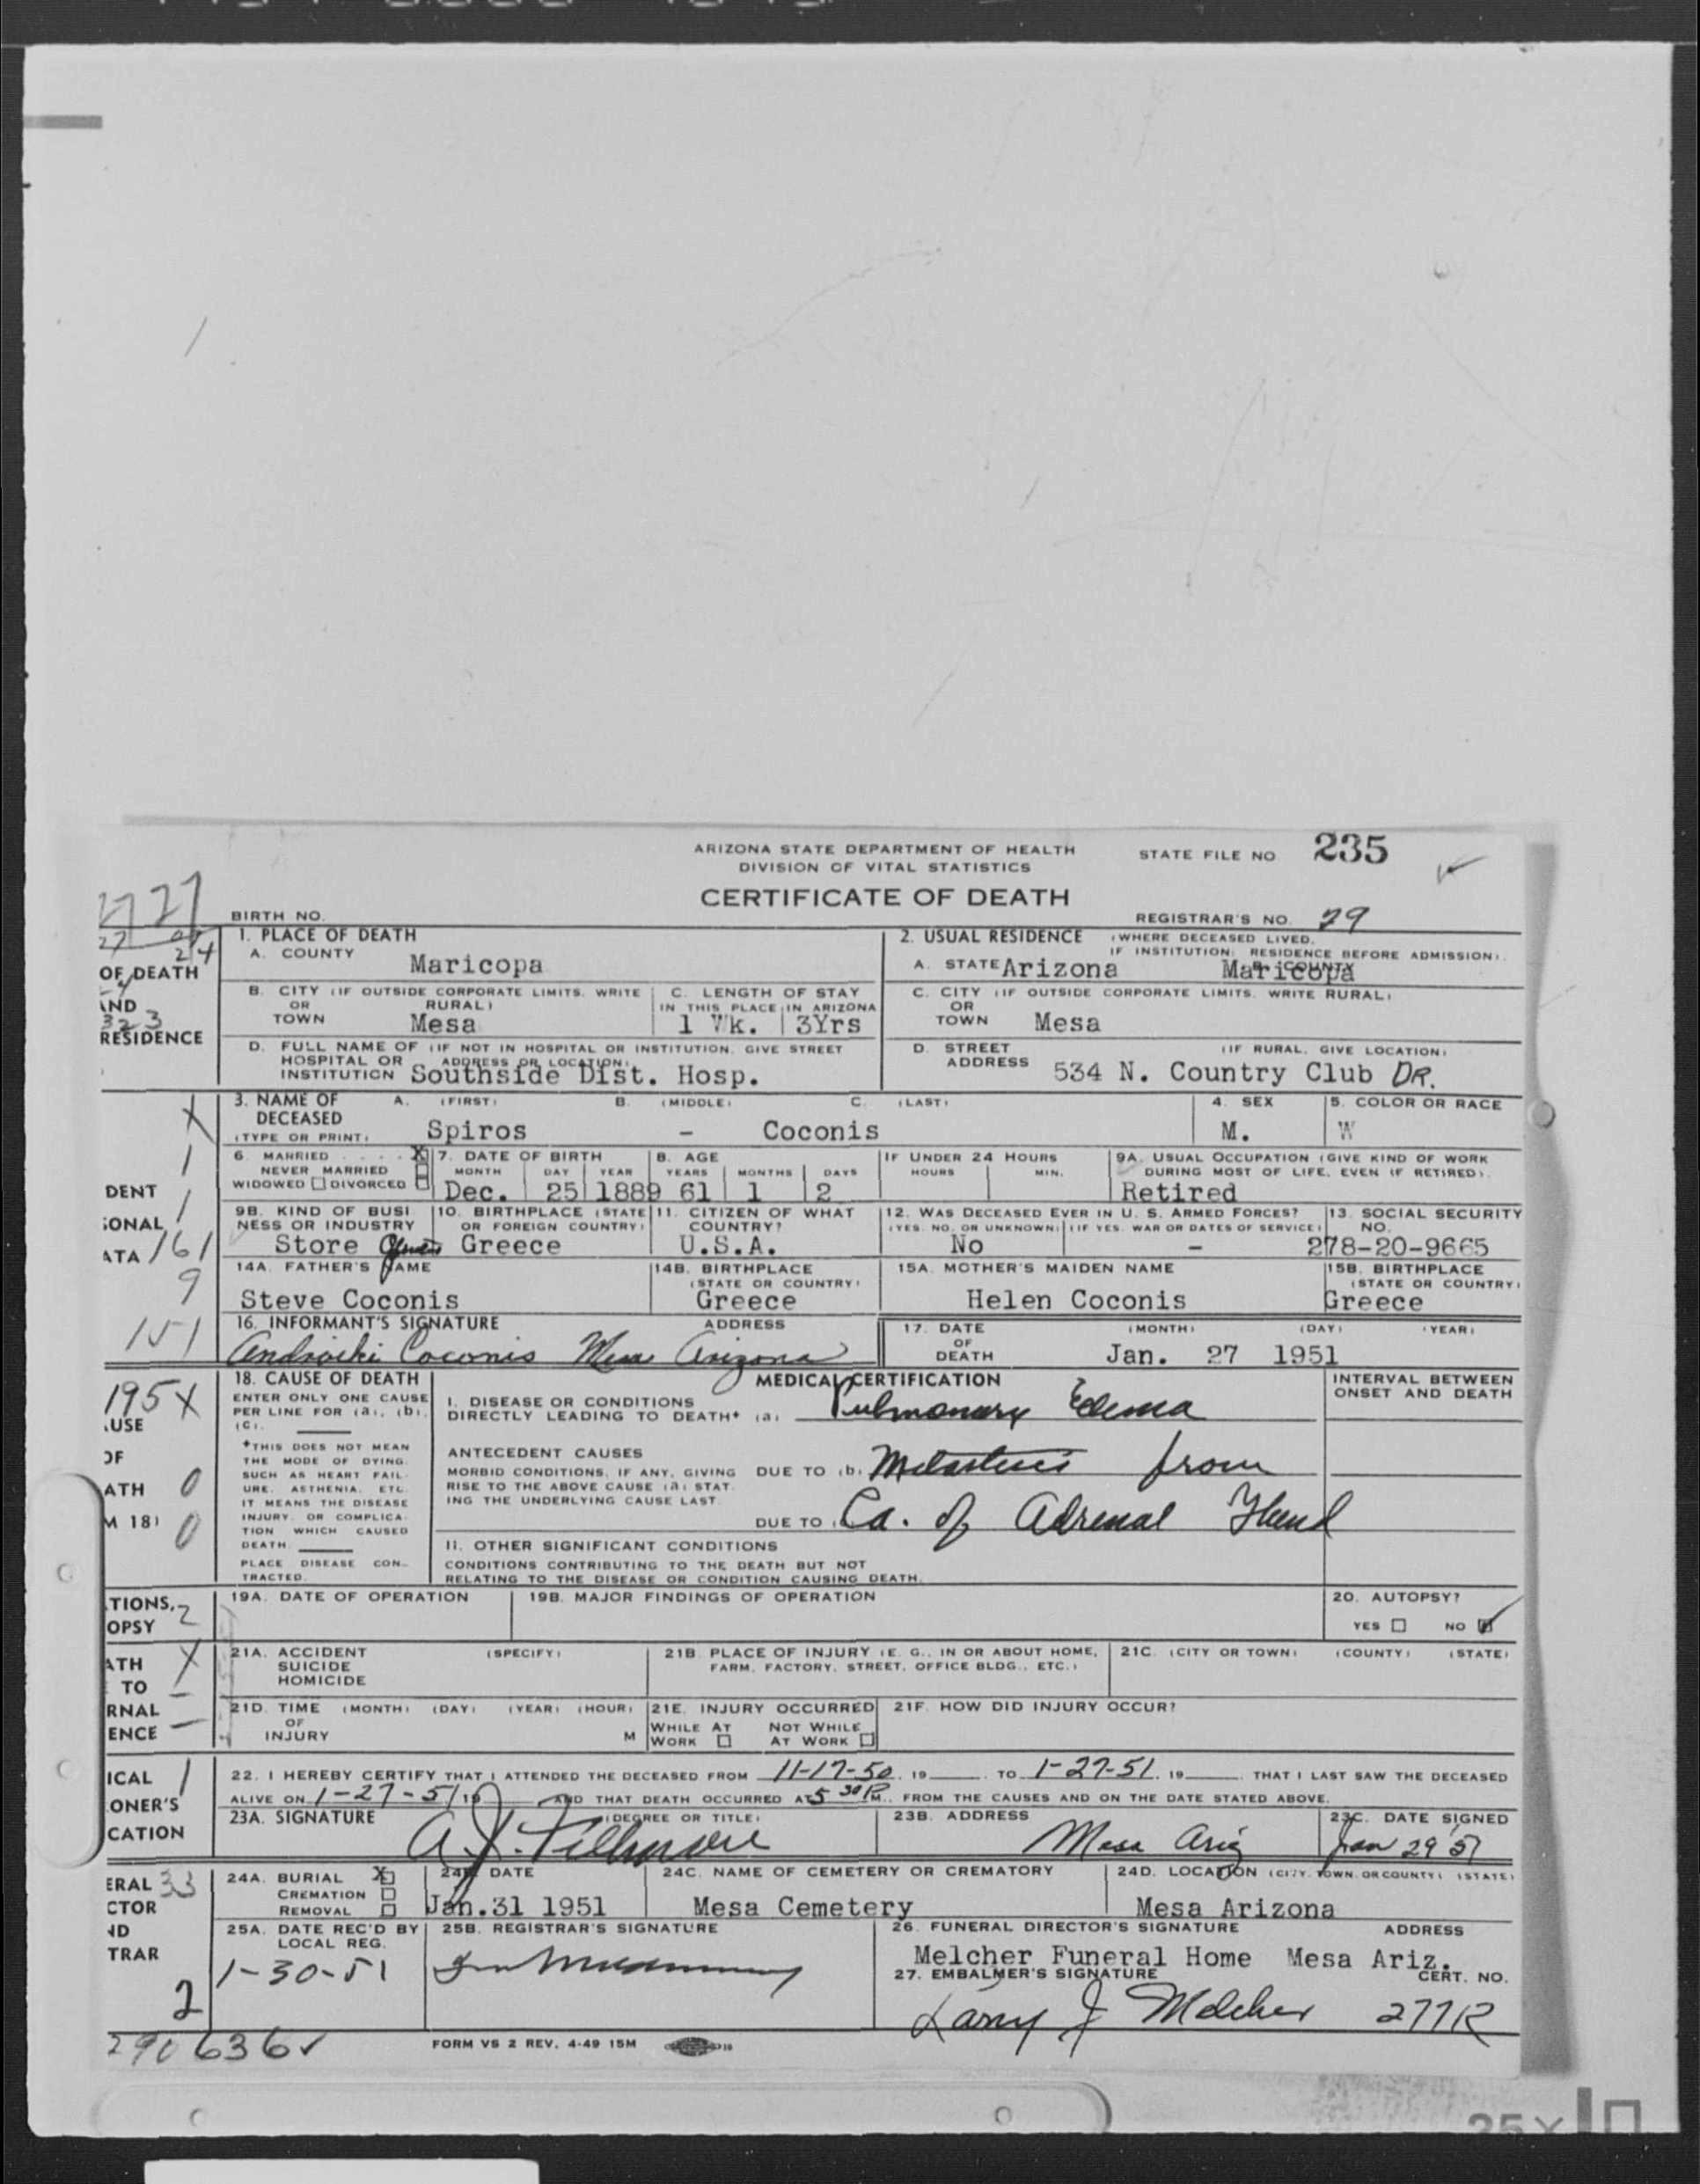 ARIZONA STATE DEPARTMENT OF HEALTH
DIVISION OF VITAL STATISTICS
STATE FILE NO 235
CERTIFICATE OF DEATH
BIRTH NO.
REGISTRAR'S NO. 29
1. PLACE OF DEATH
A. COUNTY Maricopa
2. USUAL RESIDENCE (WHERE DECEASED LIVED.
IF INSTITUTION: RESIDENCE BEFORE ADMISSION).
A. STATE Arizona B. COUNTY Maricopa
OF DEATH
AND
323
RESIDENCE
B. CITY (IF OUTSIDE CORPORATE LIMITS, WRITE RURAL)
OR
TOWN Mesa
C. LENGTH OF STAY
IN THIS PLACE IN ARIZONA
1 Wk. 3Yrs
C. CITY (IF OUTSIDE CORPORATE LIMITS, WRITE RURAL)
OR
TOWN Mesa
D. FULL NAME OF (IF NOT IN HOSPITAL OR INSTITUTION, GIVE STREET
HOSPITAL OR ADDRESS OR LOCATION)
INSTITUTION Southside Dist. Hosp.
D. STREET (IF RURAL, GIVE LOCATION)
ADDRESS 534 N. Country Club DR.
3. NAME OF A. (FIRST) B. (MIDDLE) C. (LAST)
DECEASED
(TYPE OR PRINT) Spiros - Coconis
4. SEX
M.
5. COLOR OR RACE
W
6. MARRIED X
NEVER MARRIED
WIDOWED DIVORCED
7. DATE OF BIRTH
MONTH DAY YEAR
Dec. 25 1889
8. AGE
YEARS MONTHS DAYS
61 1 2
IF UNDER 24 HOURS
HOURS MIN.
9A. USUAL OCCUPATION (GIVE KIND OF WORK
DURING MOST OF LIFE, EVEN IF RETIRED).
Retired
DENT
SONAL
ATA 161
9
151
9B. KIND OF BUSI
NESS OR INDUSTRY
Store
10. BIRTHPLACE (STATE
OR FOREIGN COUNTRY)
Greece
11. CITIZEN OF WHAT
COUNTRY?
U.S.A.
12. WAS DECEASED EVER IN U. S. ARMED FORCES?
(YES, NO, OR UNKNOWN) (IF YES, WAR OR DATES OF SERVICE)
No -
13. SOCIAL SECURITY
NO.
278-20-9665
14A. FATHER'S NAME
Steve Coconis
14B. BIRTHPLACE
(STATE OR COUNTRY)
Greece
15A. MOTHER'S MAIDEN NAME
Helen Coconis
15B. BIRTHPLACE
(STATE OR COUNTRY)
Greece
16. INFORMANT'S SIGNATURE ADDRESS
Coconis Mesa Arizona
17. DATE (MONTH) (DAY) (YEAR)
OF
DEATH Jan. 27 1951
195X
AUSE
OF
ATH 0
M 18) 0
18. CAUSE OF DEATH
ENTER ONLY ONE CAUSE
PER LINE FOR (a), (b),
(c).
*THIS DOES NOT MEAN
THE MODE OF DYING,
SUCH AS HEART FAIL-
URE, ASTHENIA, ETC.
IT MEANS THE DISEASE
INJURY, OR COMPLICA-
TION WHICH CAUSED
DEATH.
PLACE DISEASE CON-
TRACTED.
MEDICAL CERTIFICATION
INTERVAL BETWEEN
ONSET AND DEATH
I. DISEASE OR CONDITIONS
DIRECTLY LEADING TO DEATH* (a) Pulmonary Edema
ANTECEDENT CAUSES
MORBID CONDITIONS, IF ANY, GIVING
RISE TO THE ABOVE CAUSE (a) STAT-
ING THE UNDERLYING CAUSE LAST.
DUE TO (b) Metastasis from
DUE TO Ca. of Adrenal Gland
II. OTHER SIGNIFICANT CONDITIONS
CONDITIONS CONTRIBUTING TO THE DEATH BUT NOT
RELATING TO THE DISEASE OR CONDITION CAUSING DEATH.
TIONS, 2
OPSY
19A. DATE OF OPERATION
19B. MAJOR FINDINGS OF OPERATION
20. AUTOPSY?
YES NO
ATH X
TO
RNAL
ENCE
21A. ACCIDENT (SPECIFY)
SUICIDE
HOMICIDE
21B. PLACE OF INJURY (E. G., IN OR ABOUT HOME,
FARM, FACTORY, STREET, OFFICE BLDG., ETC.)
21C. (CITY OR TOWN) (COUNTY) (STATE)
21D. TIME (MONTH) (DAY) (YEAR) (HOUR)
OF
INJURY M
21E. INJURY OCCURRED
WHILE AT WORK NOT WHILE AT WORK
21F. HOW DID INJURY OCCUR?
ICAL 1
ONER'S
CATION
22. I HEREBY CERTIFY THAT I ATTENDED THE DECEASED FROM 11-17-50, 19 , TO 1-27-51, 19 , THAT I LAST SAW THE DECEASED
ALIVE ON 1-27-51 19 AND THAT DEATH OCCURRED AT 5 30 P M., FROM THE CAUSES AND ON THE DATE STATED ABOVE.
23A. SIGNATURE (DEGREE OR TITLE)
23B. ADDRESS
Mesa Ariz
23C. DATE SIGNED
Jan 29 51
ERAL 33
CTOR
ND
TRAR
2
24A. BURIAL X
CREMATION
REMOVAL
24B. DATE
Jan.31 1951
24C. NAME OF CEMETERY OR CREMATORY
Mesa Cemetery
24D. LOCATION (CITY, TOWN, OR COUNTY) (STATE)
Mesa Arizona
25A. DATE REC'D BY
LOCAL REG.
1-30-51
25B. REGISTRAR'S SIGNATURE
26. FUNERAL DIRECTOR'S SIGNATURE ADDRESS
Melcher Funeral Home Mesa Ariz.
27. EMBALMER'S SIGNATURE CERT. NO.
Larry J Melcher 277R
290636
FORM VS 2 REV. 4-49 15M
25X